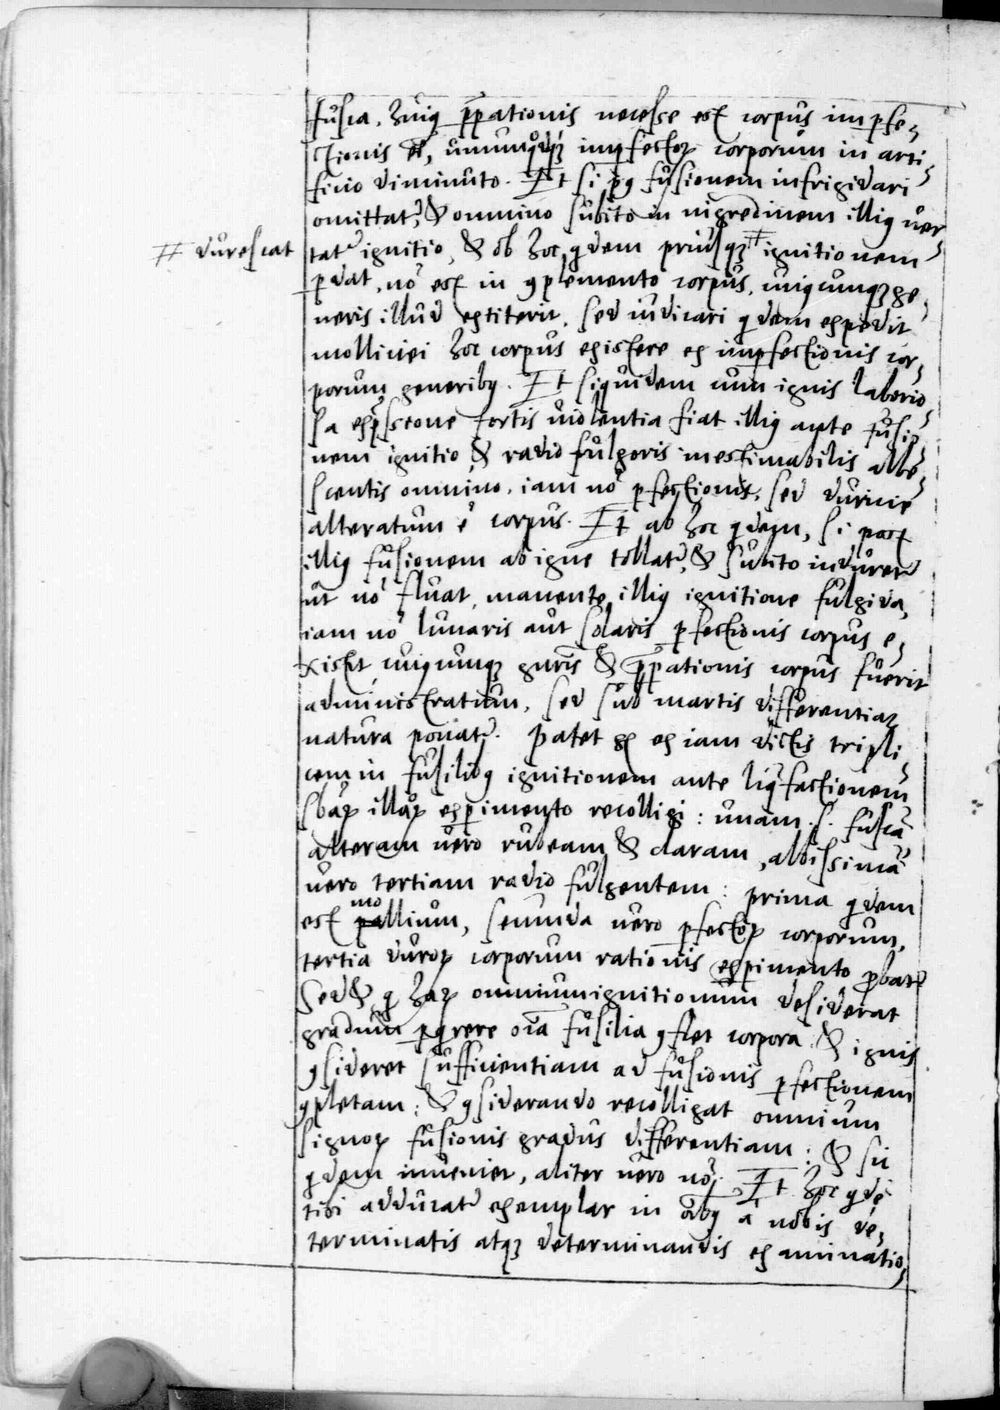 fusca, huiq ppationis necesse est corpus imperfe,
ctionis ēē, unumqdq; imperfectoꝝ corporum in arti,
ficio diminuto. Et si pꝯ fusionem infrigidari
omittatr, & omnino subito in nigredinem illiꝯ uer,
# durescat
tatr ignitio, & ob hoc qdem priusq; # ignitionem
pdat, nō est in ꝯplemento corpus, cuiꝯcunq; ge,
neris illud extiterit. Sed iudicari qdem expedit
molliciei hoc corpus existere ex imperfectionis cor,
porum generibꝯ. Et siquidem cum ignis laborio,
sa expssione fortis uiolentia fiat illiꝯ ante fusio,
nem ignitio & radio fulgoris inestimabilis albe,
scentis omnino, iam nō pfectionis, sed duricie
alteratum ē corpus. Et ab hoc qdem, si post
illiꝯ fusionem ab igne tollatr, & subito induretr
ut nō fluat, manente illiꝯ ignitione fulgida,
iam nō lunaris aut solaris pfectionis corpus e,
xistit cuiꝯcunq; gnris & ppationis corpus fuerit
administratium, sed sub martis differentiaꝝ
natura ponatr. Patet gͦ ex iam dictis tripli,
cem in fusilibꝯ ignitionem ante liqfactionem
sbaꝝ illaꝝ expimento recolligi: unam .s. fuscā
alteram uero rubeam & claram, albissimā
uero tertiam radio fulgentem: prima qdem
est mollium, secunda uero pfectoꝝ corporum,
tertia duroꝝ corporum rationis expimento pbatr
Sed & q haꝝ omnium ignitionum desiderat
gradum pqrere oīa fusilia ꝯflet corpora & ignis
ꝯsideret sufficientiam ad fusionis pfectionem
ꝯpletam: & ꝯsiderando recolligat omnium
signoꝝ fusionis gradus differentiam: & sic
qdem inueniet, aliter uero nō. Et hoc qdē
tibi adducatr exemplar in oībꝯ à nobis de,
terminatis atq; determinandis examinatio,